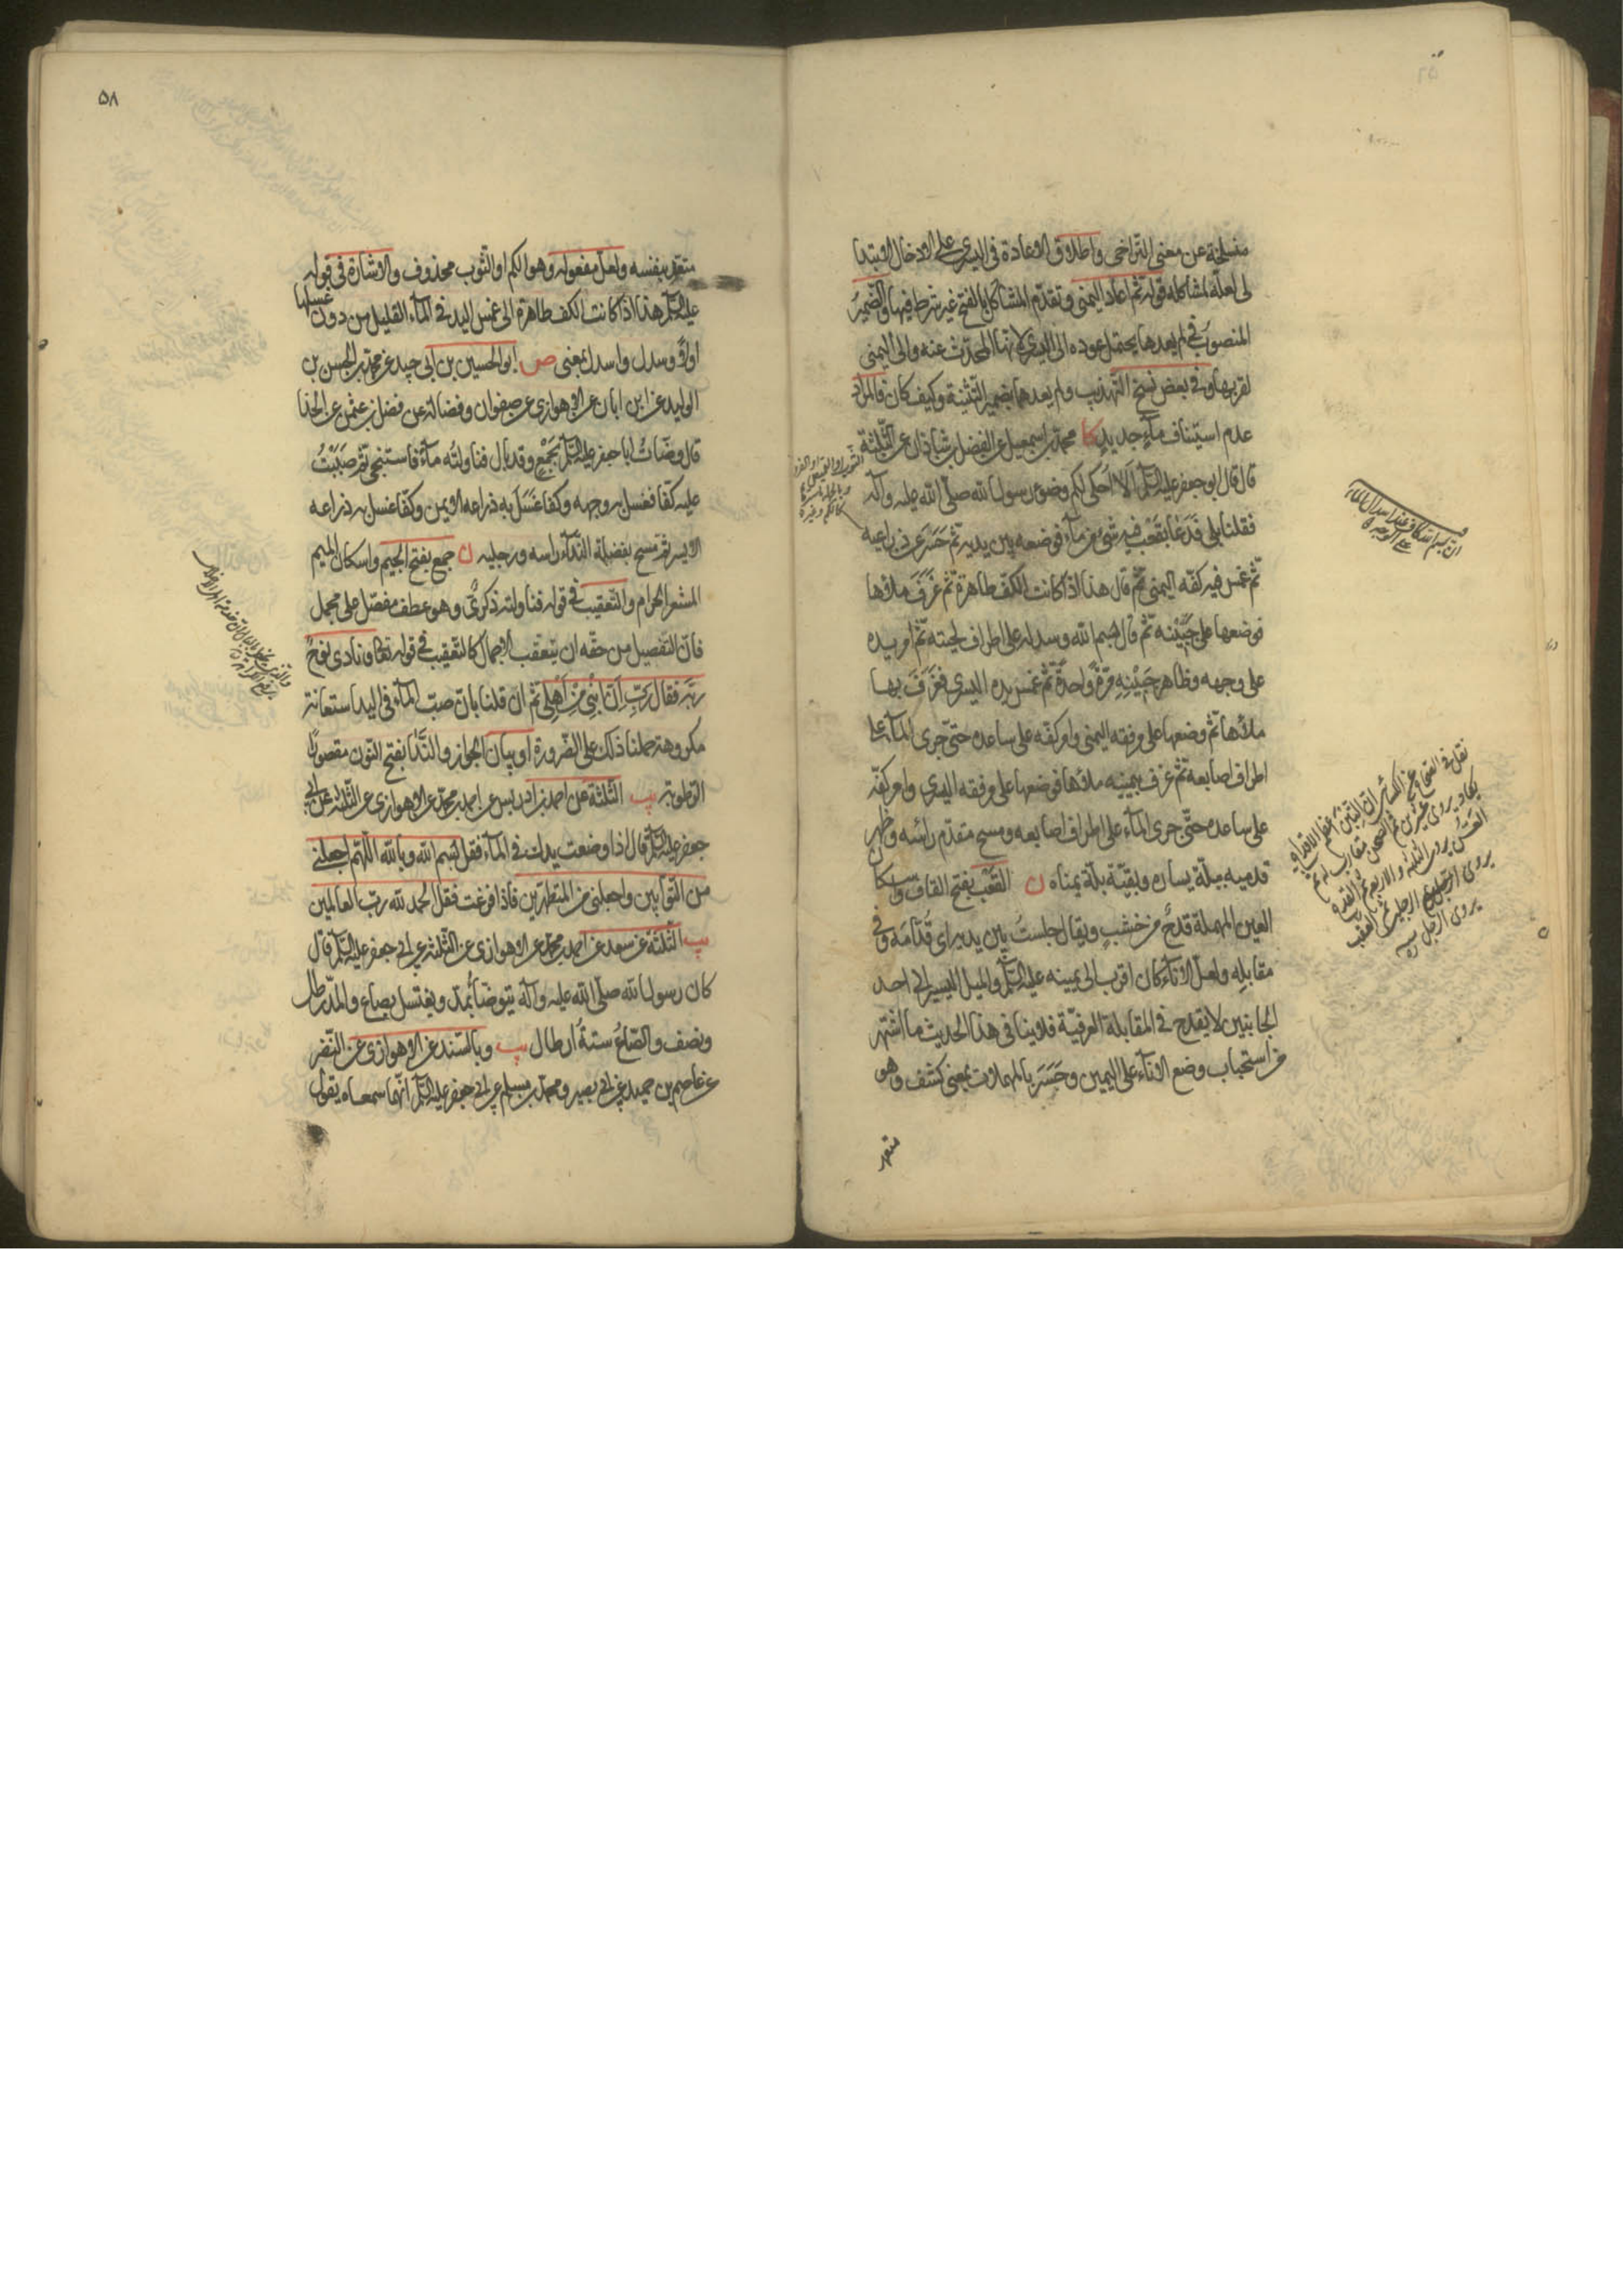 منسلخة عن معنى التراخى واطلاق الاعادة فى اليسرى على الادخال الابتدا
ئى لعله لمشاكلة قوله ثم اعاد اليمنى وتقدم المشاكل بالفتح غير شرط فيها والضمير
المنصوب فى لم يعدها يحتمل عوده الى اليسرى لانها المحدث عنه والى اليمنى
لقربها وفى بعض نسخ التهذيب ولم يعدهما بضمير التثنية وكيف كان فالمراد
عدم استيناف ماء جديد كا محمد بن اسمعيل عن الفضل بن شاذان عن الثلثة
قال قال ابو جعفر عليه السلام الا احكى لكم وضوء رسول الله صلى الله عليه وآله
فقلنا بلى فدعا بقعب فيه شئ من ماء فوضعه بين يديه ثم حسر عن ذراعيه
ثم غمس فيه كفه اليمنى ثم قال هذا اذا كانت الكف طاهرة ثم غرف ملأها
فوضعها على جبينه ثم قال بسم الله وسدله على اطراف لحيته ثم امر يده
على وجهه وظاهر جبينه مرة واحدة ثم غمس يده اليسرى فغرف بها
ملأها ثم وضعها على مرفقه اليمنى وامر كفه على ساعده حتى جرى الماء على
اطراف اصابعه ثم غرف بيمينه ملأها فوضعها على مرفقه اليسرى وامر كفه
على ساعده حتى جرى الماء على اطراف اصابعه ومسح مقدم رأسه وظهر
قدميه ببلة يساره وبقية بلة يمناه ن القعب بفتح القاف واسكان
العين المهملة قدح من خشب ويقال جلست بين يديه اى قدامه وفى
مقابله ولعل الاناء كان اقرب الى يمينه عليه السلام والميل اليسير الى احد
الجانبين لا يقدح فى المقابلة العرفية فلا ينافى هذا الحديث ما اشتهر
من استحباب وضع الاناء على اليمين وحسر بالمهملات بمعنى كشف وهو
متعد
۵۸
متعد بنفسه ولعل مفعوله وهو الكم او الثوب محذوف والاشارة فى قوله
عليه السلام هذا اذا كانت الكف طاهرة الى غمس اليد فى الماء القليل من دون غسلها
اولا وسدل واسدل بمعنى ص ابو الحسين بن ابى جيد عن محمد بن الحسن بن
الوليد عن ابن ابان عن الاهوازى عن صفوان وفضالة عن فضل بن عثمن عن الحذا
قال وضأت ابا جعفر عليه السلام بجمع وقد بال فناولته ماء فاستنجى ثم صببت
عليه كفا فغسل به وجهه وكفا غسل به ذراعه الايمن وكفا غسل به ذراعه
الايسر ثم مسح بفضلة الندآء راسه ورجليه ن جمع بفتح الجيم واسكان الميم
المشعر الحرام والتعقيب فى قوله فناولته ذكرى وهو عطف مفصل على مجمل
فان التفصيل من حقه ان يتعقب الاجمال كالتعقيب فى قوله تعالى ونادى نوح
ربه فقال رب ان ابنى من اهلى ثم ان قلنا بان صب الماء فى اليد استعانة
مكروهة حملنا ذلك على الضرورة او بيان الجواز والندا بفتح النون مقصورا
الرطوبة يب الثلثة عن احمد بن ادريس عن احمد بن محمد عن الاهوازى عن الثلثة عن ابى
جعفر عليه السلام قال اذا وضعت يدك فى الماء فقل بسم الله وبالله اللهم اجعلنى
من التوابين واجعلنى من المتطهرين فاذا فرغت فقل الحمد لله رب العالمين
يب الثلثة عن سعد عن احمد بن محمد عن الاهوازى عن الثلثة عن ابى جعفر عليه السلام قال
كان رسول الله صلى الله عليه وآله يتوضأ بمد ويغتسل بصاع والمد رطل
ونصف والصاع ستة ارطال يب وبالسند عن الاهوازى عن النضر
عن عاصم بن حميد عن ابى بصير ومحمد بن مسلم عن ابى جعفر عليه السلام انهما سمعاه يقول